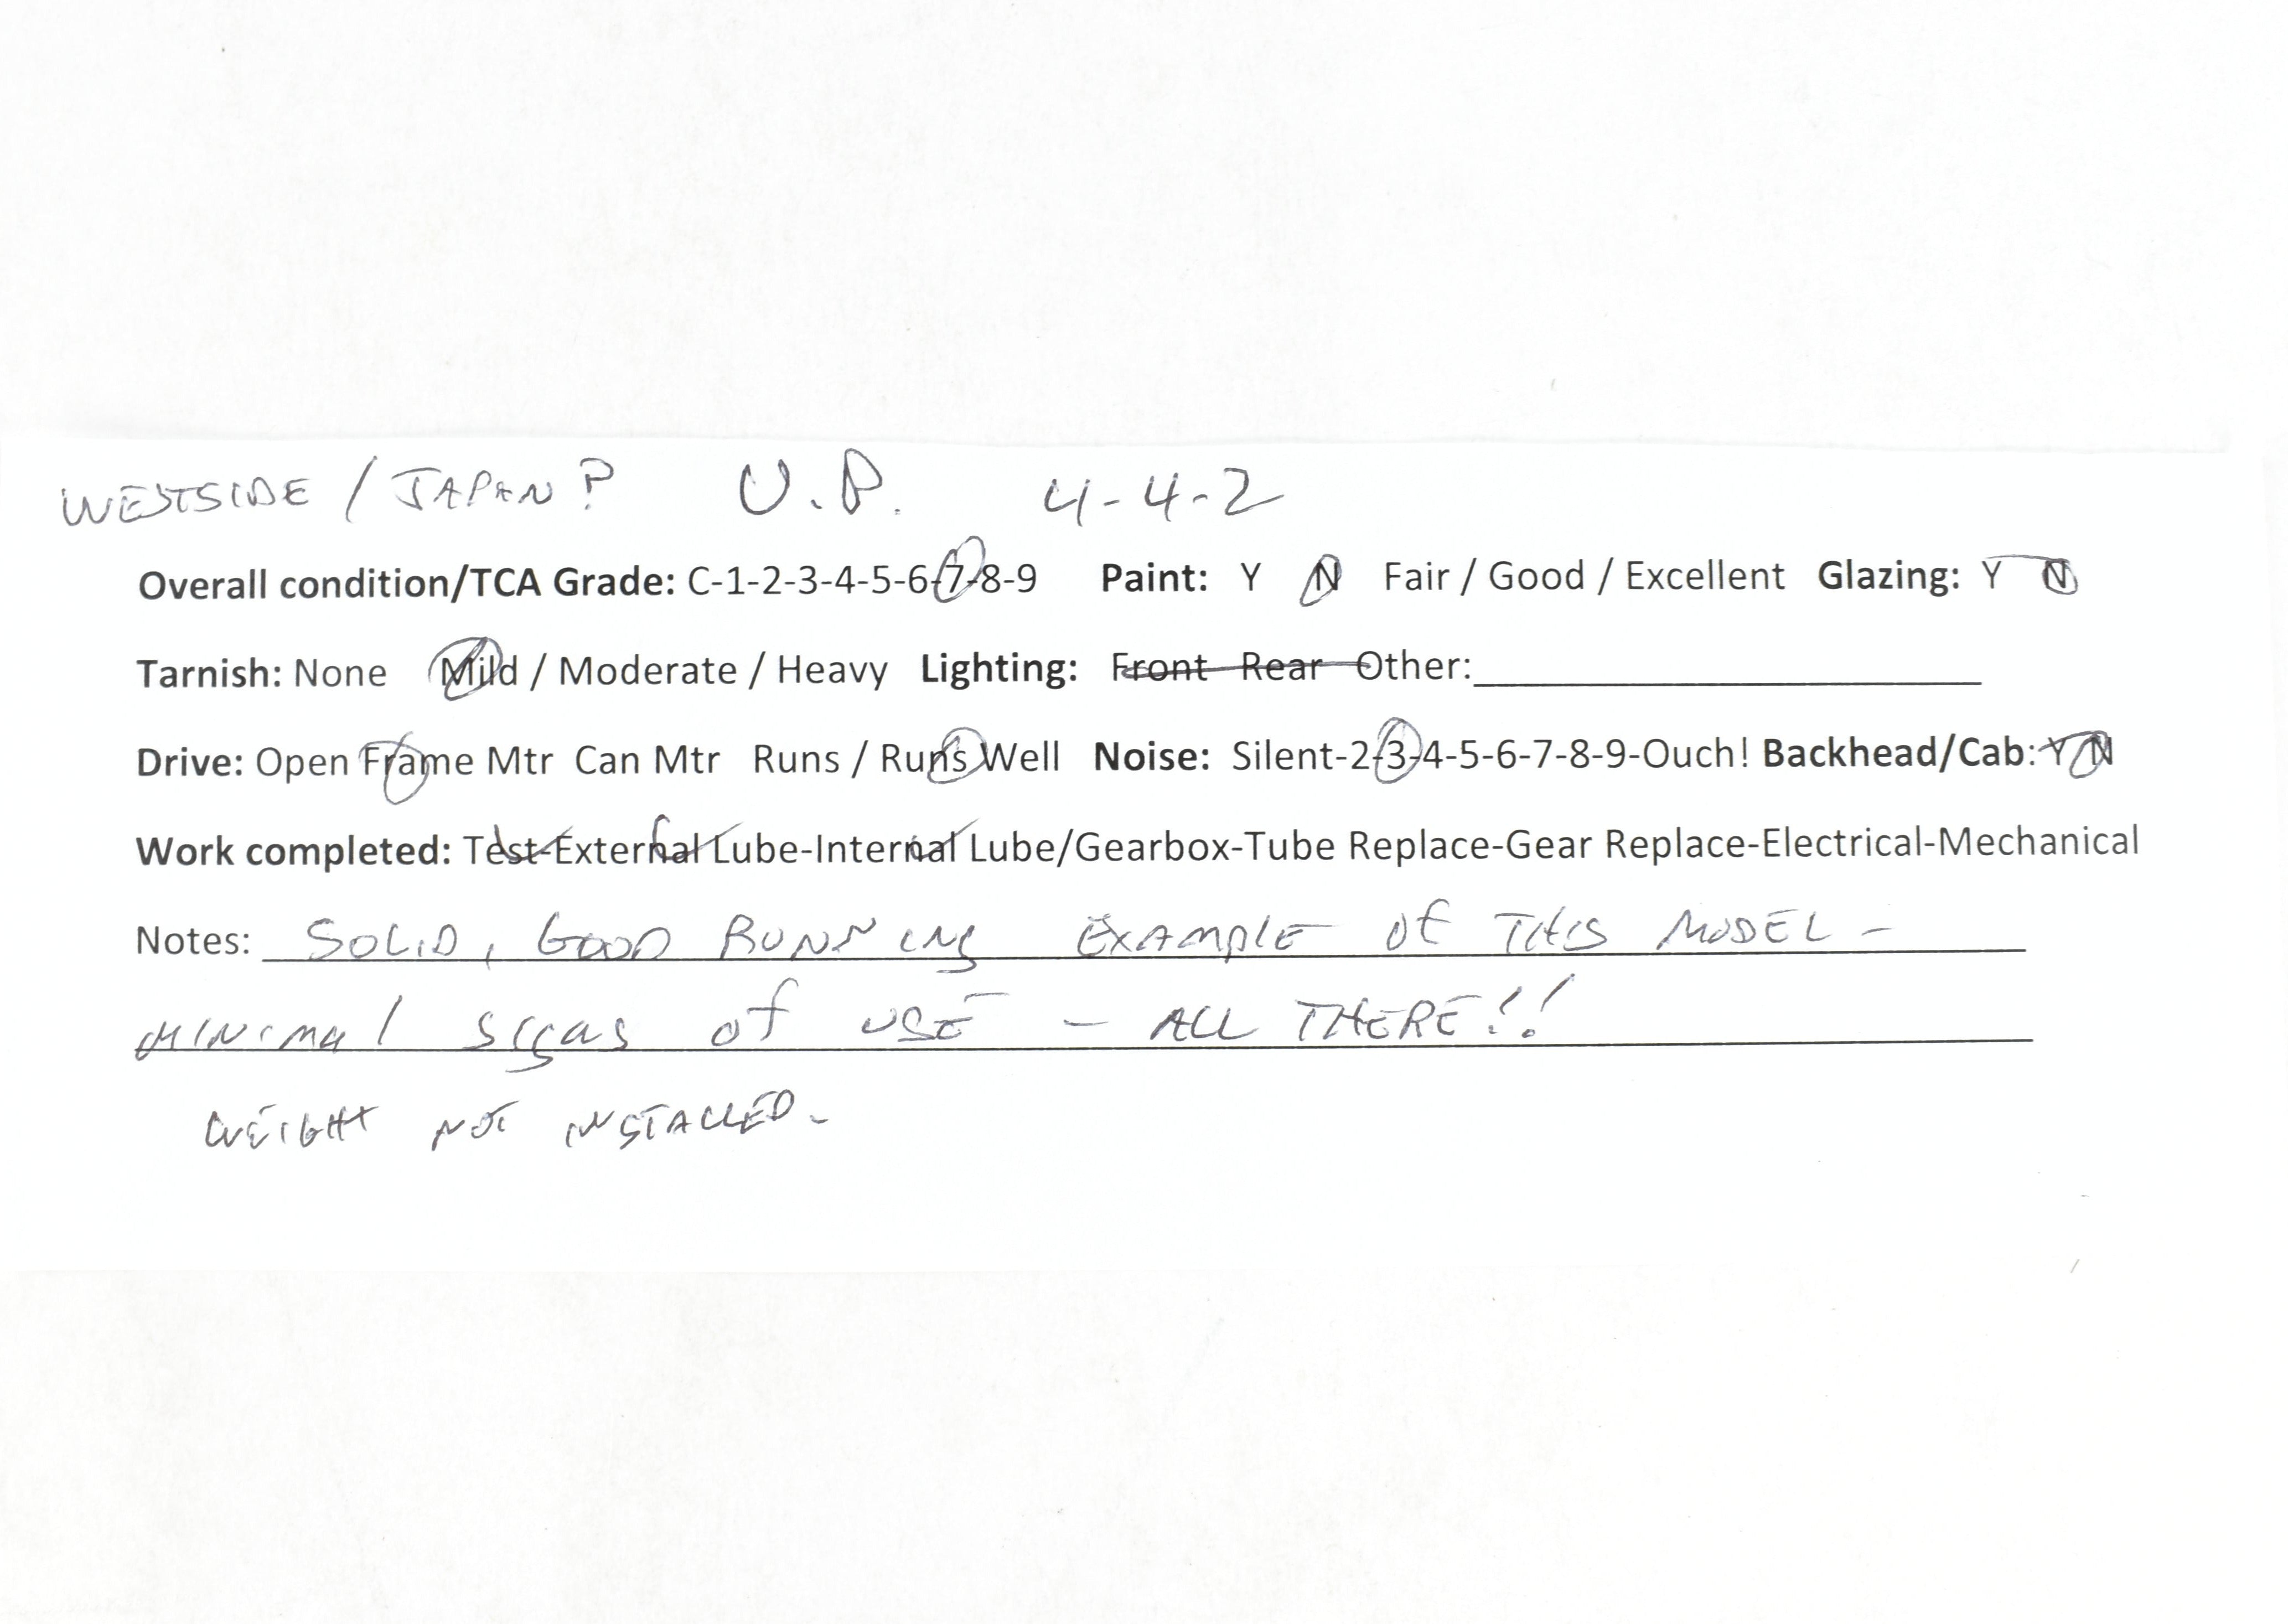 WESTSIDE / JAPAN? U.P. 4-4-2
Overall condition/TCA Grade: C-1-2-3-4-5-6-7-8-9 Paint: Y N Fair / Good / Excellent Glazing: Y N
Tarnish: None Mild / Moderate / Heavy Lighting: Front Rear Other:
Drive: Open Frame Mtr Can Mtr Runs / Runs Well Noise: Silent-2-3-4-5-6-7-8-9-Ouch! Backhead/Cab: Y N
Work completed: Test-External Lube-Internal Lube/Gearbox-Tube Replace-Gear Replace-Electrical-Mechanical
Notes: SOLID, GOOD RUNNING EXAMPLE OF THIS MODEL -
MINIMAL SIGNS OF USE - ALL THERE!!
WEIGHT NOT INSTALLED.